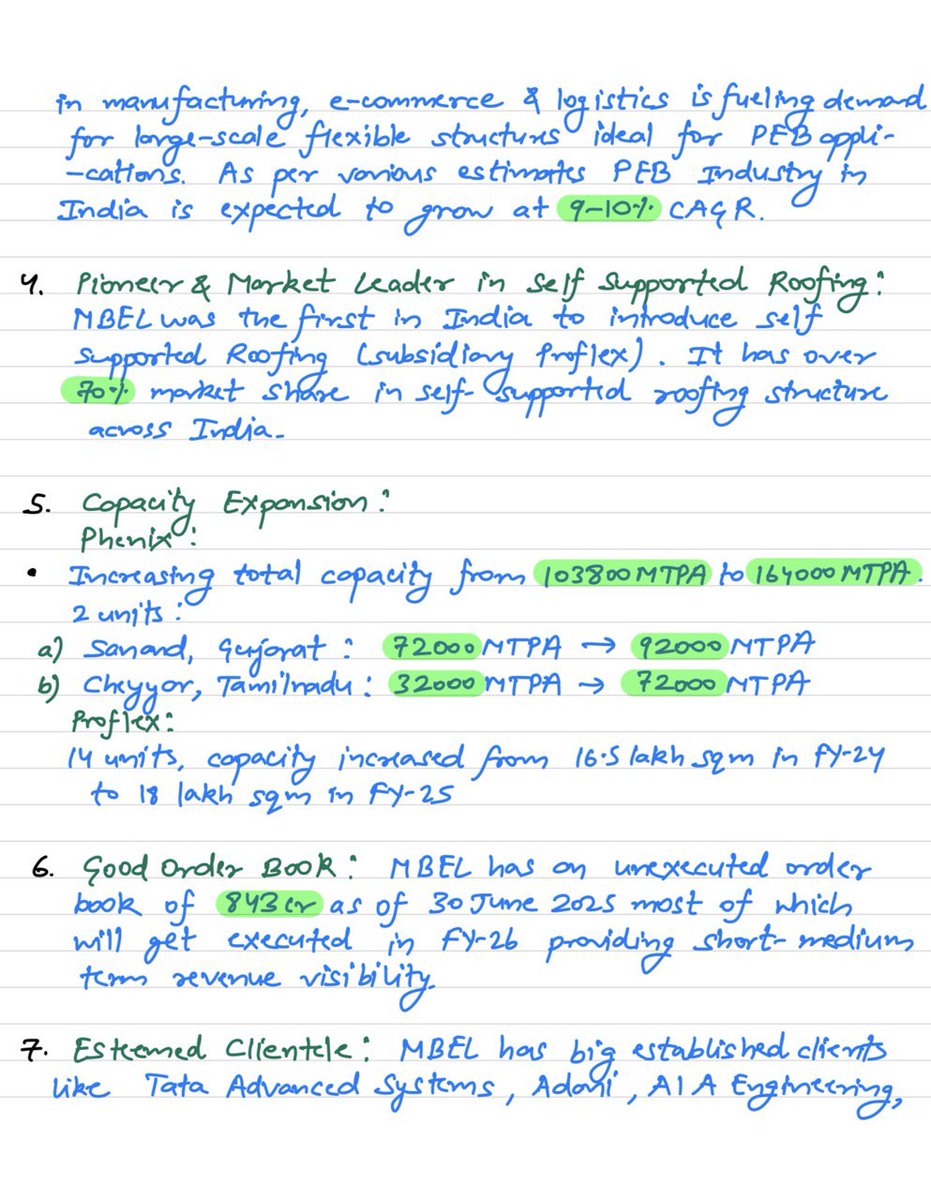 in manufacturing, e-commerce & logistics is fueling demand
for large-scale flexible structures ideal for PEB appli-
-cations. As per various estimates PEB Industry in
India is expected to grow at 9-10% CAGR.
4. Pioneer & Market Leader in Self Supported Roofing:
MBEL was the first in India to introduce self
Supported Roofing (subsidiary Proflex). It has over
70% market share in self-supported roofing structure
across India.
5. Capacity Expansion:
Phenix:
• Increasing total capacity from 103800 MTPA to 164000 MTPA.
2 units:
a) Sanand, Gujarat: 72000 MTPA → 92000 MTPA
b) Cheyyar, Tamilnadu: 32000 MTPA → 72000 MTPA
Proflex:
14 units, capacity increased from 16.5 lakh sqm in FY-24
to 18 lakh sqm in FY-25
6. Good Order Book: MBEL has an unexecuted order
book of 843 cr as of 30 June 2025 most of which
will get executed in FY-26 providing short-medium
term revenue visibility.
7. Esteemed Clientele: MBEL has big established clients
like Tata Advanced Systems, Adani, AIA Engineering,